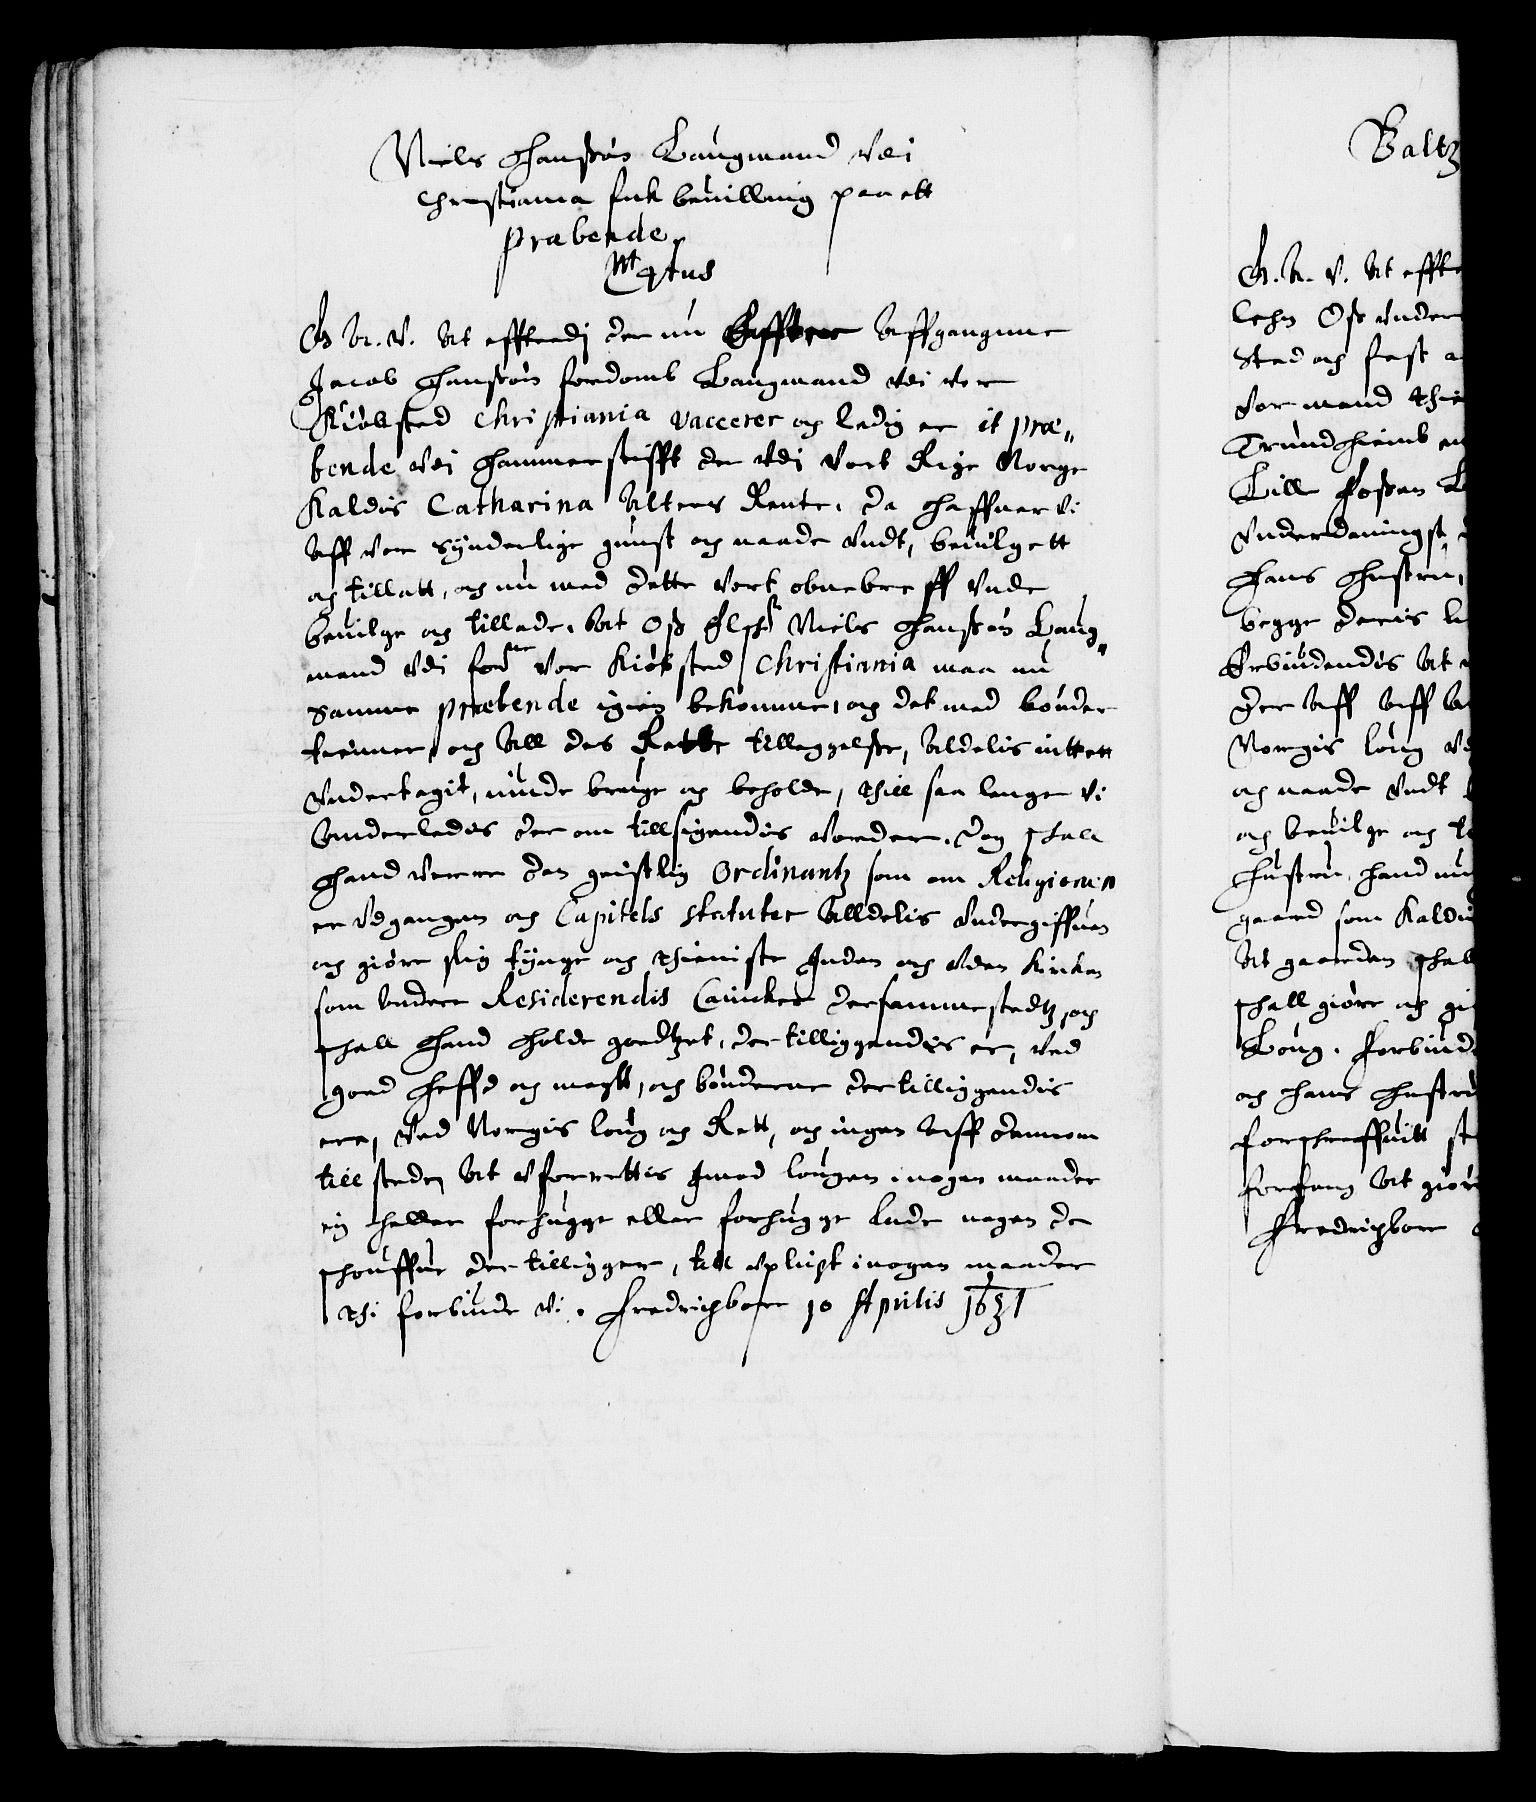 Niels Hanssøn Laugmand vdi
Christiania fick beuilling paa ett
Præbende.
Ctus
G. A. V. At effterdj der nu Effter Affgangne
Jacob Hanssøn fordomb Laugmand vdi vor
Kiøbsted Christiania vaccerer og ledig er it præ„
bende vdi Hammer stifft der vdi vort Rige Norge
kaldis Catharina Alters Rente. Da haffuer vi
Aff vor synderlige gunst og naade vndt, beuilgett
og tillatt, og nu med dette vort obnebreff vnde
beuilge og tillade. At Oss Elsk: Niels Hanssøn Laug„
mand vdi forne vor Kiøbsted Christiania maa nu
samme præbende igien bekomme, og det med bønder
tienner, og All des Rette tilleggelsse, Aldelis inttett
vndertagit, niude bruge og beholde, thill saa lenge vi
Anderledis der om tillsigendis vorder. Dog skall
hand verre den geistlig Ordinantz som om Religionen
er vdgangen og Capitels statuter Alldelis vndergiffuen
og giøre slig tynge og thieniste Inden og vden kircken
som Andre Residerendis Canicker dersammestedtz, og
skall hand holde goedtzet, der tilliggendis er, ved
goed heffd og magtt, og bønderne der tilliggendis
ere, ved Norgis loug og Rett, og ingen Aff dennom
till steden At vforrettis Imod lougen i nogen maader
eig heller forhugge eller forhugge lade nogen de
skouffue der tilligger, till vpligt i nogen maader
Thi forbiude vi. Fredrigsborg 10 Aprilis 1631
Baltz
G. A. V. At effte
lehn Oss vnder
sted og fest a
vor mand thie
Trundhiemb en
Lill Fossen L
vnderdaningst
hans hustru,
begge deris li
Erbiudendis At
der Aff Aff
Norgis loug vd
og naade vndt
og beuilge og t
hustru, hand nu
gaard som kaldis
At gaarden skall
skall giøre og gi
Loug. Forbiud
og hans hustru
forskreffuitt st
forfang At giør
Fredrigsborg